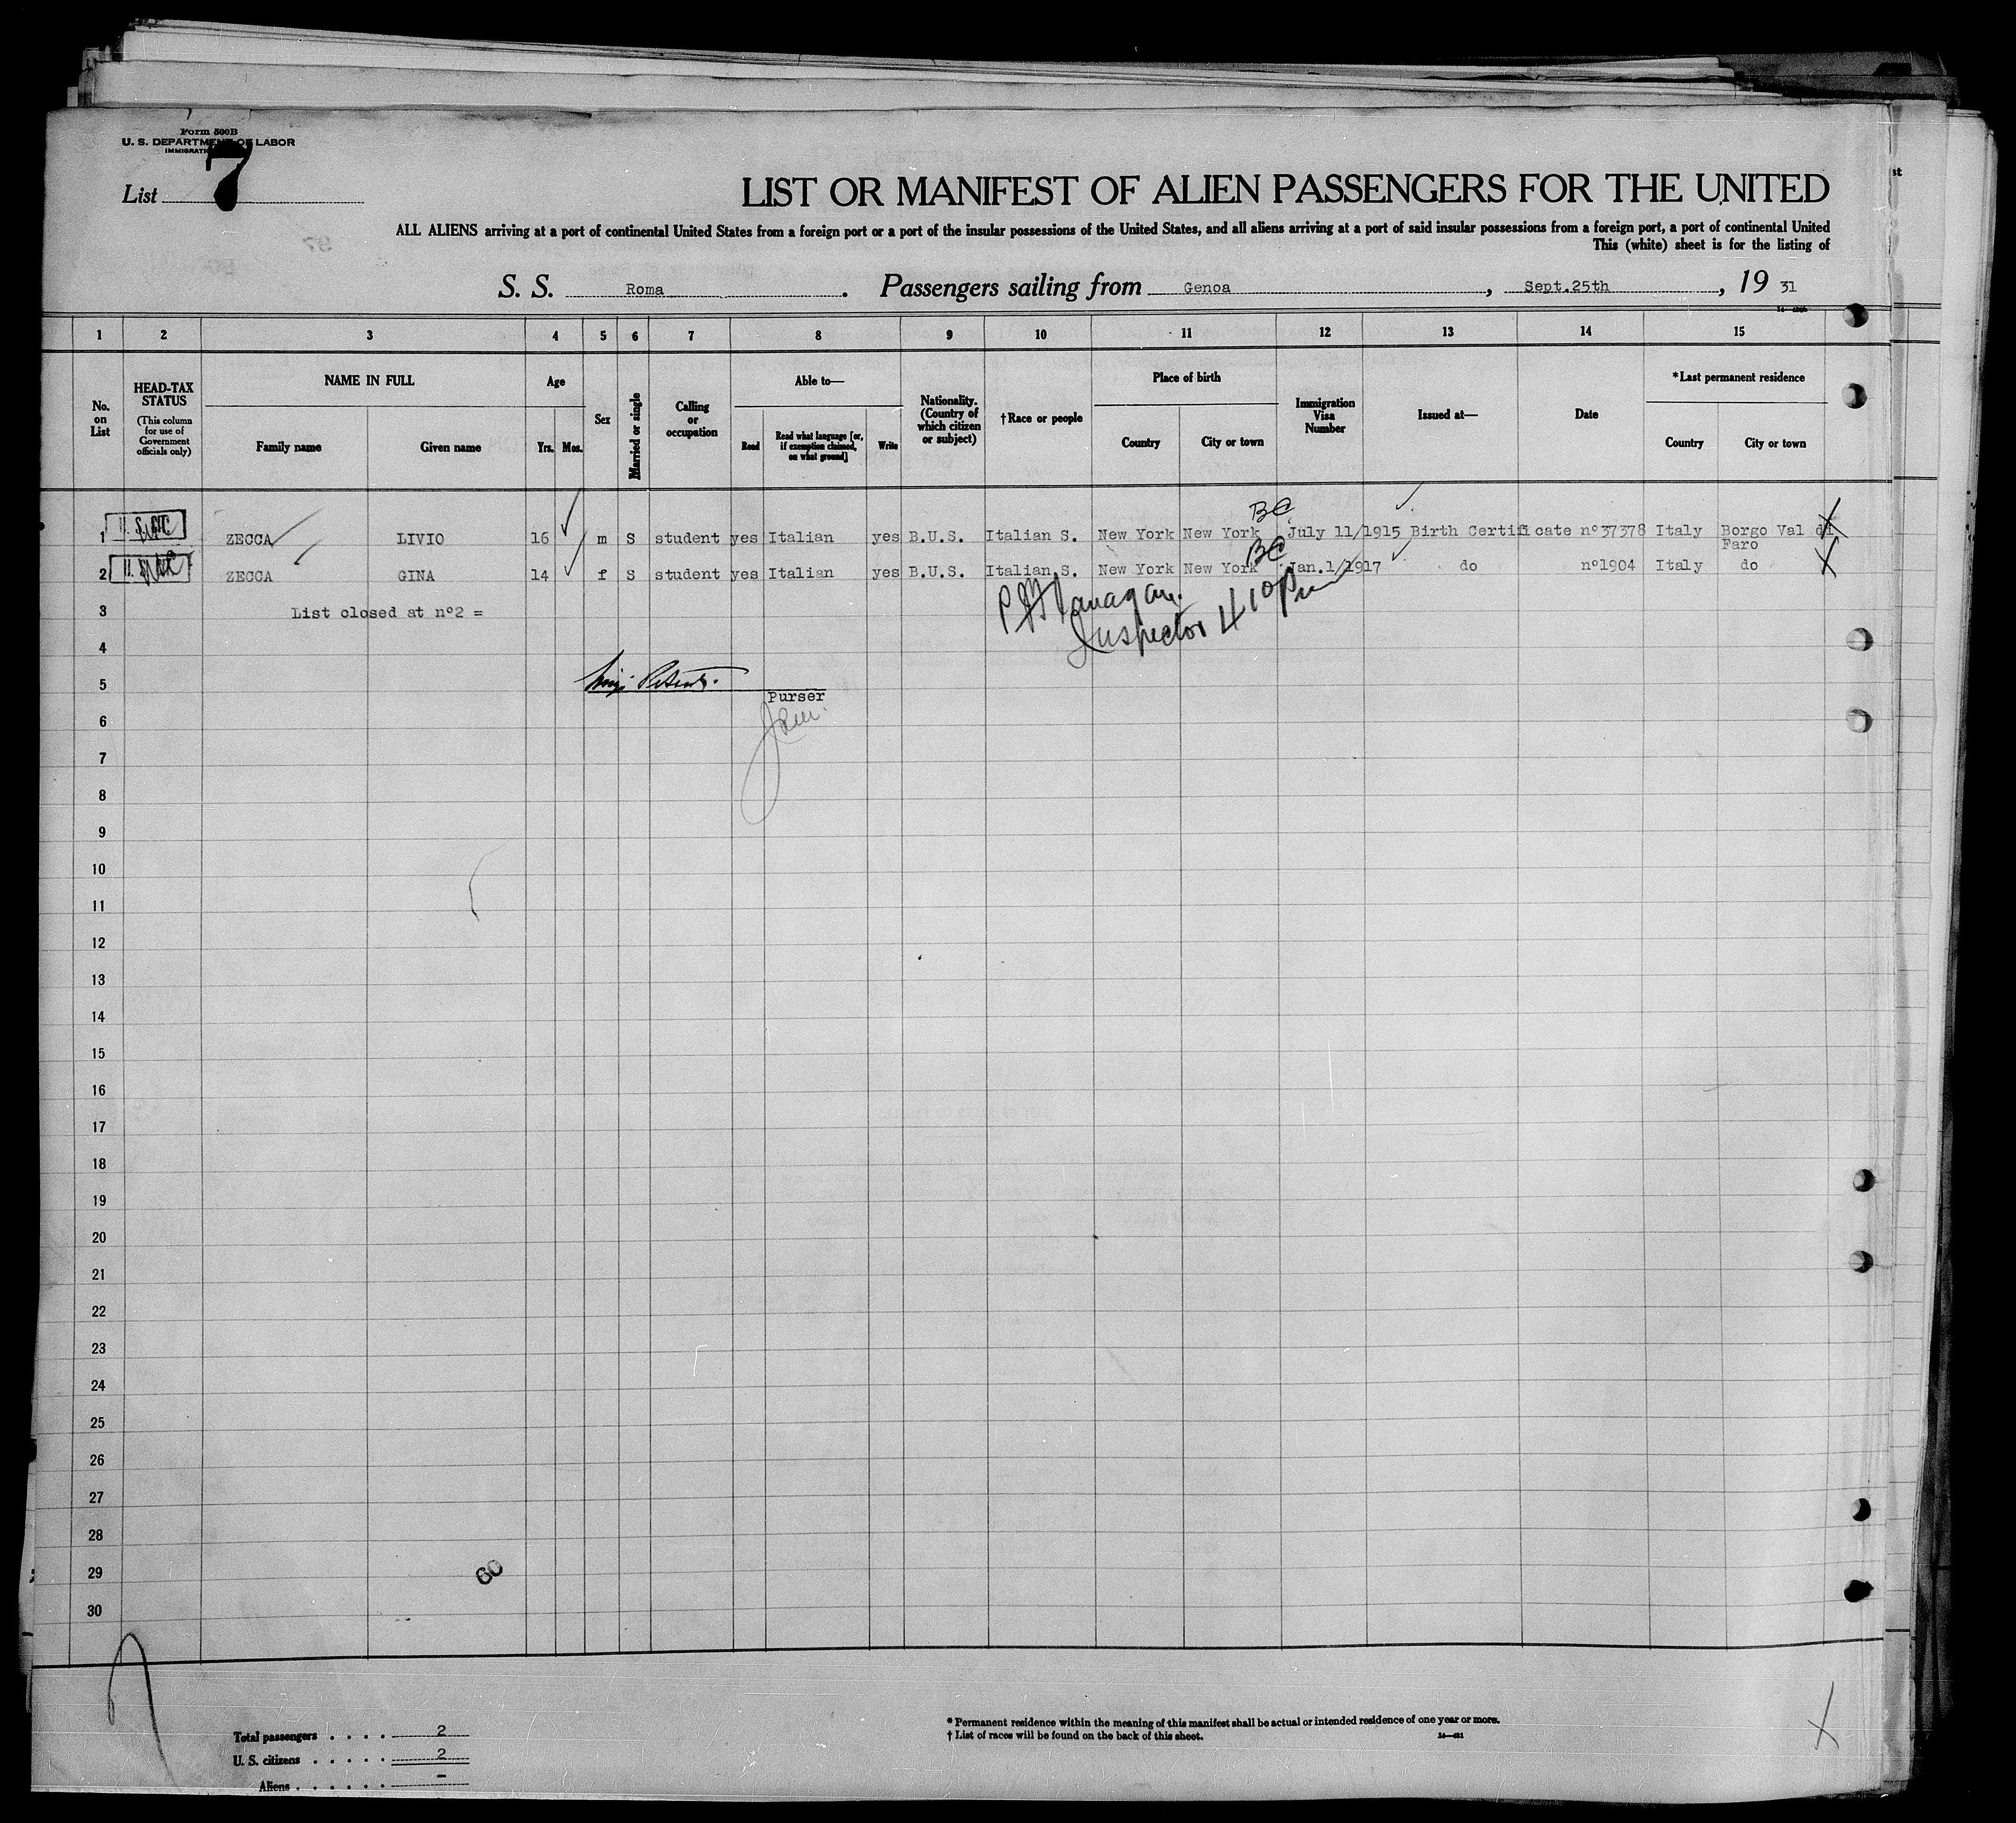 Form 500B
U. S. DEPARTMENT OF LABOR
IMMIGRATION
List 7
LIST OR MANIFEST OF ALIEN PASSENGERS FOR THE UNITED
ALL ALIENS arriving at a port of continental United States from a foreign port or a port of the insular possessions of the United States, and all aliens arriving at a port of said insular possessions from a foreign port, a port of continental United
This (white) sheet is for the listing of
S. S. Roma. Passengers sailing from Genoa, Sept.25th, 19 31
1 2 3 4 5 6 7 8 9 10 11 12 13 14 15
No. on List
HEAD-TAX STATUS
(This column for use of Government officials only)
NAME IN FULL
Family name Given name
Age
Yrs. Mos.
Sex
Married or single
Calling or occupation
Able to—
Read Read what language [or, if exemption claimed, on what ground] Write
Nationality. (Country of which citizen or subject)
†Race or people
Place of birth
Country City or town
Immigration Visa Number
Issued at—
Date
*Last permanent residence
Country City or town
BC
1 U. S. CIT. ZECCA LIVIO 16 m S student yes Italian yes B.U.S. Italian S. New York New York July 11/1915 Birth Certificate nº37378 Italy Borgo Val di
Faro
BC
2 ZECCA GINA 14 f S student yes Italian yes B.U.S. Italian S. New York New York Jan.1/1917 do nº1904 Italy do
3 List closed at nº2 =
P J Flanagan
Inspector 4 10 Pm
4
5
Purser
6
7
8
9
10
11
12
13
14
15
16
17
18
19
20
21
22
23
24
25
26
27
28
29
60
30
Total passengers . . . . 2
U. S. citizens . . . . . 2
Aliens . . . . . . -
* Permanent residence within the meaning of this manifest shall be actual or intended residence of one year or more.
† List of races will be found on the back of this sheet.